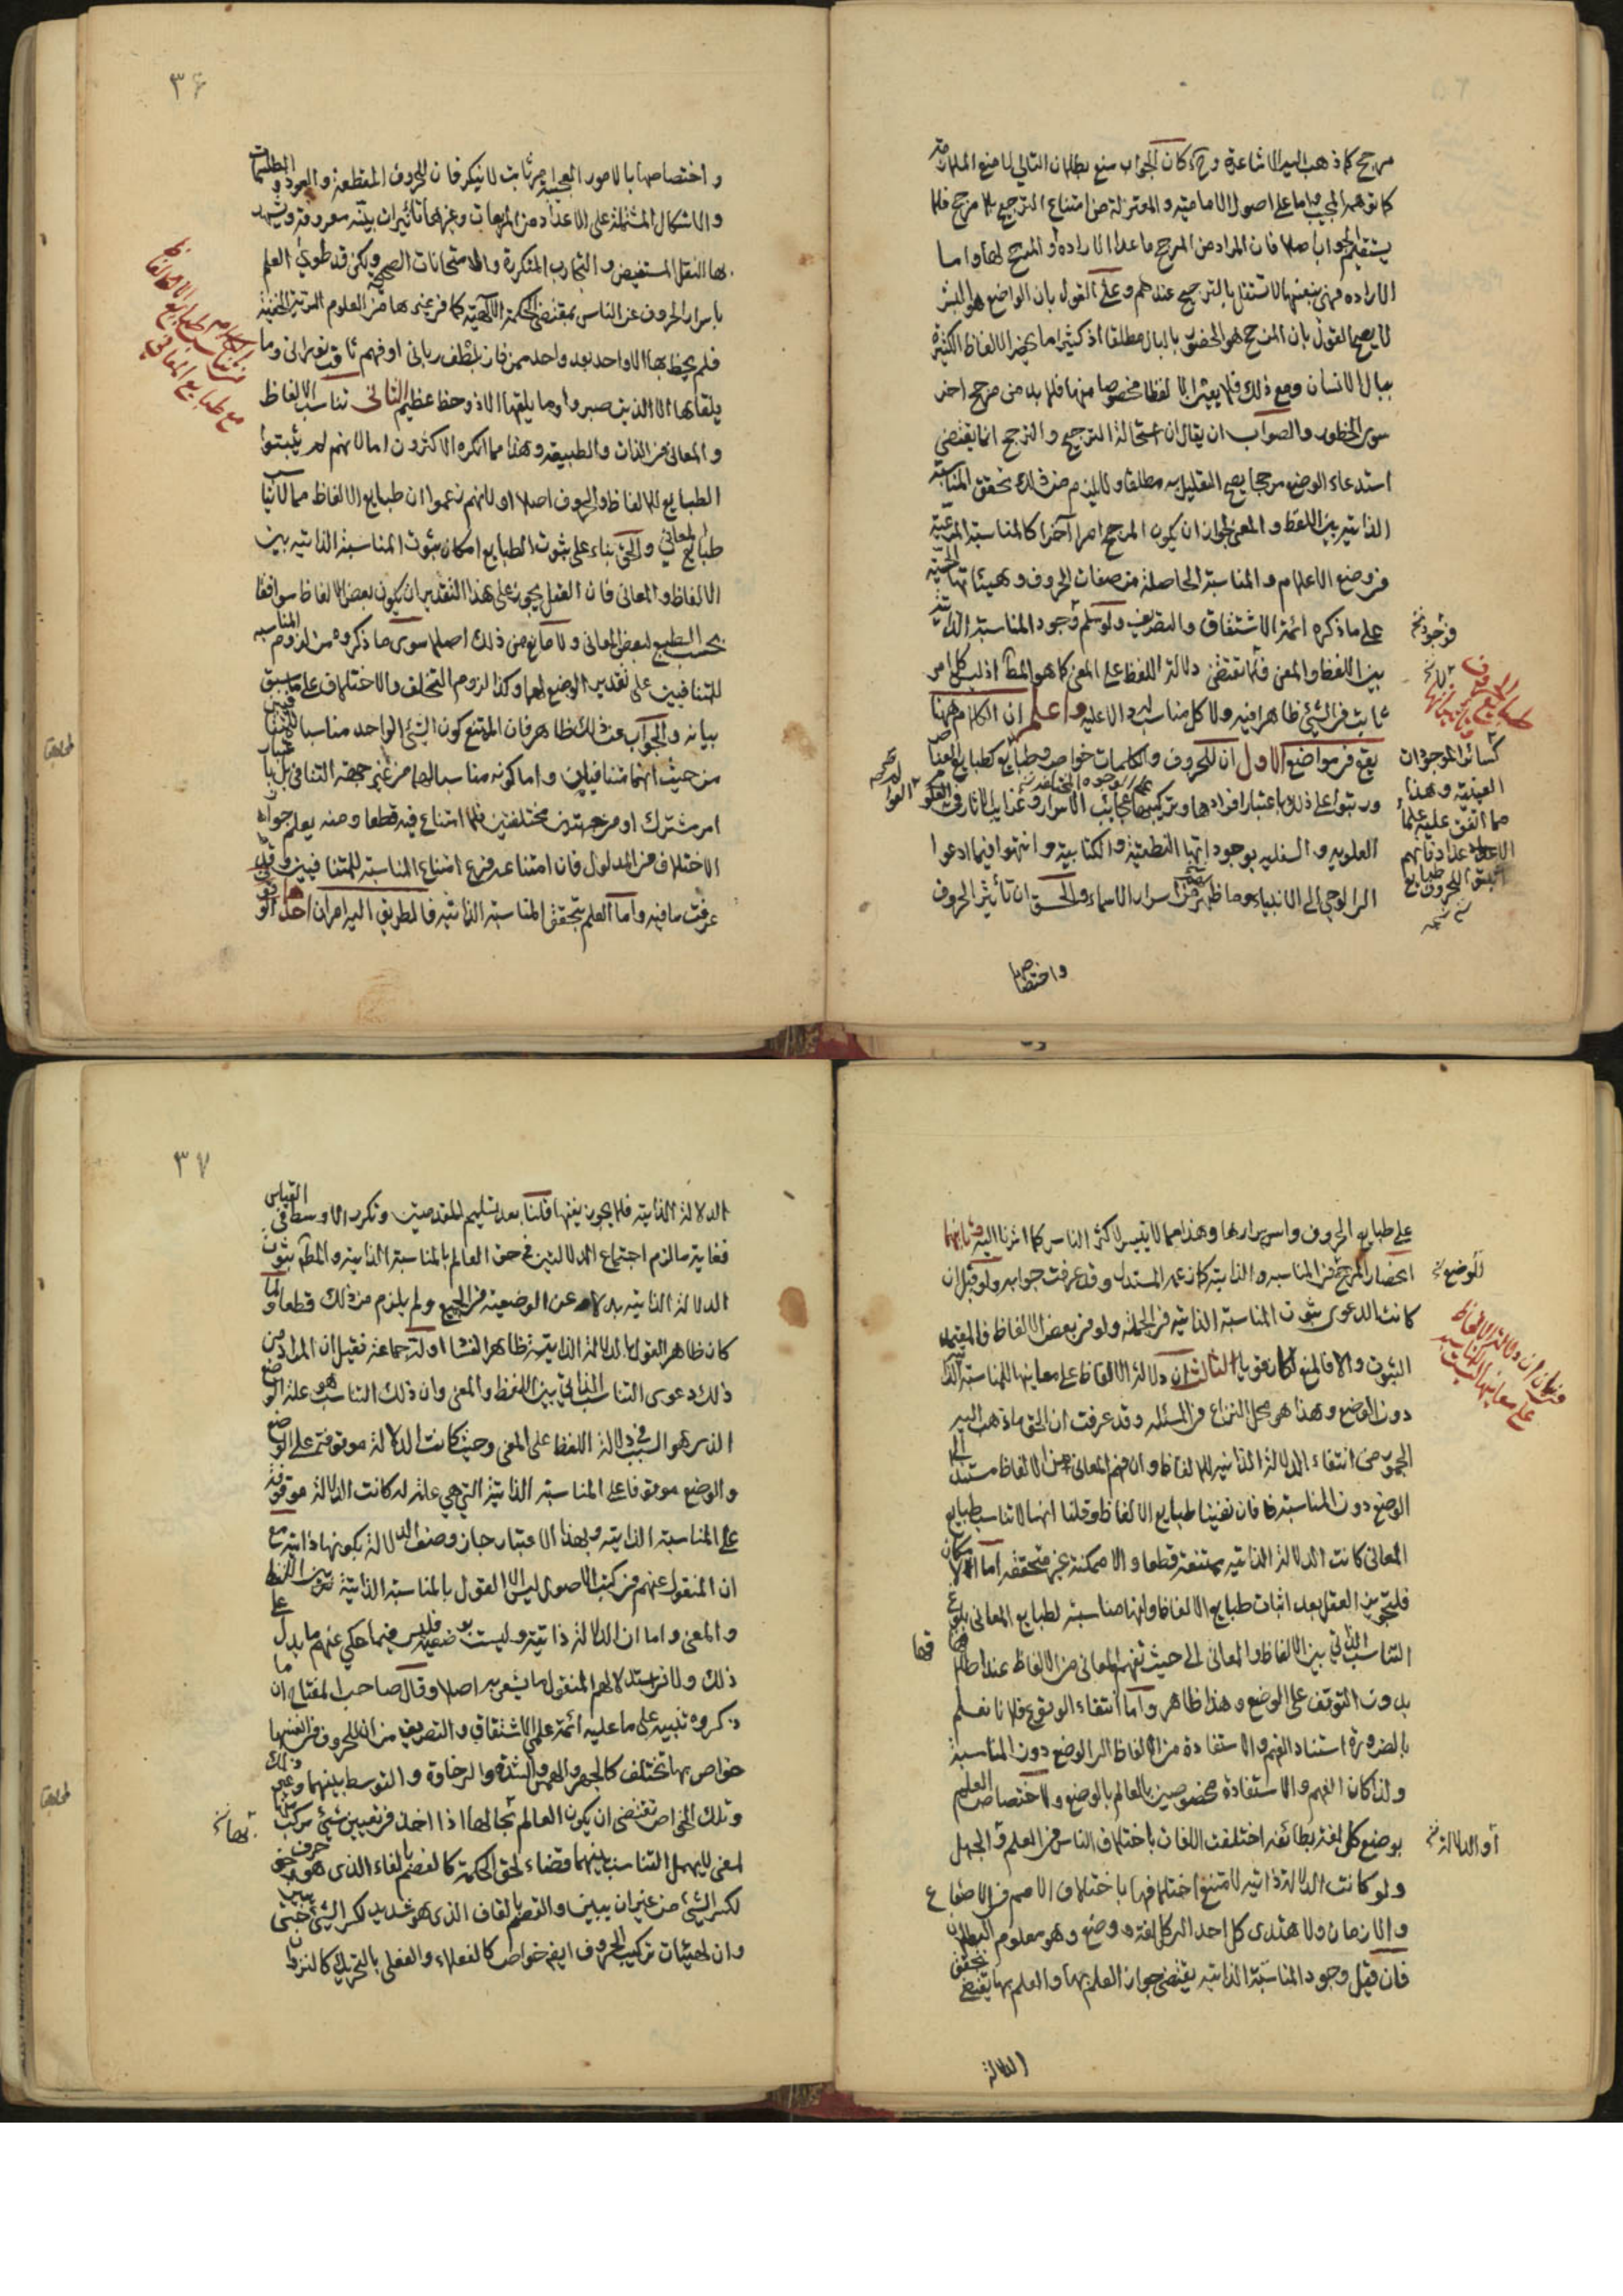 مرجح كما ذهب اليه الاشاعرة وح كان الجواب منع بطلان التالى لا منع الملازمة
كما توهمه المجيب واما على اصول الامامية والمعتزلة من امتناع الترجيح بلا مرجح فلا
يستقيم الجواب اصلا فان المراد من المرجح ما عدا الارادة او المرجح لها واما
الارادة فهى بنفسها لا تستقل بالترجيح عندهم وعلى القول بان الواضع هو البشر
لا يصح القول بان المرجح هو الخطور بالبال مطلقا اذ كثيرا ما يخطر الالفاظ الكثيرة
ببال الانسان ومع ذلك فلا يعتبر الا لفظا مخصوصا منها فلا بد من مرجح اخر
سوى الخطور والصواب ان يقال ان استحالة الترجيح والترجح انما يقتضى
استدعاء الوضع مرجحا يصح التعليل به مطلقا ولا يلزم من ذلك تحقق المناسبة
الذاتية بين اللفظ والمعنى لجواز ان يكون المرجح امرا آخر كالمناسبة المرعية
فى وضع الاعلام والمناسبة الحاصلة من صفات الحروف وهيئاتها
على ما ذكره ائمة الاشتقاق والتصريف ولو سلم وجود المناسبة الذاتية
بين اللفظ والمعنى فلا تقتضى دلالة اللفظ على المعنى كما هو المط اذ ليس كل امر
ثابت فى الشئ ظاهرا فيه ولا كل مناسب له دالا عليه واعلم ان الكلام ههنا
يقع فى مواضع الاول ان للحروف والكلمات خواص وطبايع كطبايع العناصر
ورتبوا على ذلك باعتبار افرادها وتركيبها عجايب الاسرار وغرايب الاثار فى
العلويه والسفليه بوجوداتها النطقية والكتابية وانتهوا فيما ادعوا
الى الوحى الى الانبياء وما ظهر من اسرار الاسماء والحق ان تأثير الحروف
كسائر الموجودات
العينية وهذا
مما اتفق عليه علماء
الاعداد فانهم
اثبتوا للحروف طبايع
واختصاصها
٣۶
واختصاصها بالامور العجيبة امر ثابت لا ينكر فان للحروف المقطعة والعوذ والطلسمات
والاشكال المشتملة على الاعداد من المربعات وغيرها تأثيرات بينه معروفة ويشهد
لها النقل المستفيض والتجارب المتكررة والامتحانات الصحيحة ولكن قد طوى العلم
باسرار الحروف عن الناس بمقتضى الحكمة الالهية كما فى غيرها من العلوم الغريبة الخفية
فلم يحط بها الا واحد بعد واحد ممن فاز بلطف ربانى او فهم ثاقب نورانى وما
يلقاها الا الذين صبروا وما يلقاها الا ذو حظ عظيم الثانى تناسب الالفاظ
والمعانى فى الذات والطبيعة وهذا مما انكره الاكثرون اما لانهم لم يثبتوا
الطبايع للالفاظ والحروف اصلا او لانهم زعموا ان طبايع الالفاظ مما لا تناسب
طبايع المعانى والحق بناء على ثبوت الطبايع امكان ثبوت المناسبة الذاتيه بين
الالفاظ والمعانى فان العقل يجوز على هذا التقدير ان يكون بعض الالفاظ موافقا
بحسب الطبع لبعض المعانى ولا مانع من ذلك اصلا سوى ما ذكروه من لزوم المناسبه
للمتنافيين على تقدير الوضع لهما وكذا لزوم التخلف والاختلاف على ما سبق
بيانه والجواب عن ذلك ظاهر فان الممتنع كون الشئ الواحد مناسبا للمتنافيين
من حيث انهما متنافيان واما كونه مناسبا لهما من غير جهة التنافى بل باعتبار
امر مشترك او من جهتين مختلفتين فلا امتناع فيه قطعا ومنه يعلم جواز
الاختلاف فى المدلول فان امتناعه فرع امتناع المناسبه للمتنافيين وقد
عرفت ما فيه واما العلم بتحقق المناسبة الذاتيه فالطريق اليه امران احدهما الوقوف
على طبايع الحروف واسرارها وهذا مما لا يتيسر لاكثر الناس كما اشرنا اليه وثانيهما
انحصار المرجح فى المناسبه الذاتية كما زعمه المستدل وقد عرفت جوابه ولو قيل ان
كانت الدعوى ثبوت المناسبة الذاتية فى الجملة ولو فى بعض الالفاظ فالمتجه
الثبوت والا فالمنع كان قويا الثالث ان دلالة الالفاظ على معانيها للمناسبة الذاتية
دون الوضع وهذا هو محل النزاع فى المسئله وقد عرفت ان الحق ما ذهب اليه
الجمهور من انتفاء الدلالة الذاتيه للالفاظ وان فهم المعانى من الالفاظ مستند الى
الوضع دون المناسبة فان نفينا طبايع الالفاظ وقلنا انها لا تناسب طبايع
المعانى كانت الدلالة الذاتيه ممتنعة قطعا والا ممكنة غير متحققة اما الامكان
فلتجويز العقل بعد اثبات طبايع الالفاظ وانها مناسبة لطبايع المعانى بلوغ
التناسب الذاتى بين الالفاظ والمعانى الى حيث تفهم المعانى من الالفاظ عند اطلاقها
بدون التوقف على الوضع وهذا ظاهر واما انتفاء الوقوع فلانا نعلم
بالضرورة استناد الفهم والاستفادة من الالفاظ الى الوضع دون المناسبة
ولذا كان الفهم والاستفادة مخصوصين بالعالم بالوضع ولاختصاص العلم
بوضع كل لغة بطائفة اختلفت اللغات باختلاف الناس فى العلم والجهل
ولو كانت الدلالة ذاتيه لامتنع اختلافها باختلاف الامم فى الاصقاع
والازمان ولاهتدى كل احد الى كل لغة ووضع وهو معلوم البطلان
فان قيل وجود المناسبة الذاتيه يقتضى جواز العلم بها والعلم بها يقتضى تحقق
للوضع
او الدلالة
الدلالة
٣٧
الدلالة الذاتيه فلا يجوز نفيها قلنا بعد تسليم المقدمتين وتكرر الاوسط فى القياس
فغاية ما لزم اجتماع الدلالتين فى حق العالم بالمناسبة الذاتية والمط ثبوت
الدلالة الذاتيه بدلا عن الوضعية فى الجميع ولم يلزم من ذلك قطعا ولما
كان ظاهر القول بالدلالة الذاتية ظاهر الفساد اولته جماعة فقيل ان المراد من
ذلك دعوى التناسب الذاتى بين اللفظ والمعنى وان ذلك التناسب هو علة الوضع
الذى هو السبب فى دلالة اللفظ على المعنى وحيث كانت الدلالة موقوفة على الوضع
والوضع موقوفا على المناسبة الذاتية التى هى علة له كانت الدلالة موقوفة
على المناسبة الذاتيه وبهذا الاعتبار جاز وصف الدلالة بكونها ذاتية مع
ان المنقول عنهم فى كتب الاصول ليس الا القول بالمناسبة الذاتية بين اللفظ
والمعنى واما ان الدلالة ذاتية وليست بوضعية فليس فيما حكى عنهم ما يدل على
ذلك ولا فى استدلالهم المنقول ما يشعر به اصلا وقال صاحب المفتاح ان ما
ذكروه تنبيه على ما عليه ائمة علمى الاشتقاق والتصريف من ان للحروف فى انفسها
خواص بها تختلف كالجهر والهمس والشدة والرخاوة والتوسط بينهما وغير ذلك
وتلك الخواص تقتضى ان يكون العالم بها اذا اخذ فى تعيين شئ مركب منها
لمعنى لا يهمل التناسب بينهما قضاء لحق الحكمة كالفصم بالفاء الذى هو حرف رخو
لكسر الشئ من غير ان يبين والقصم بالقاف الذى هو شديد لكسر الشئ حتى يبين
وان لهيئات تركيب الحروف ايض خواص كالفعلان والفعلى بالتحريك كالنزوان